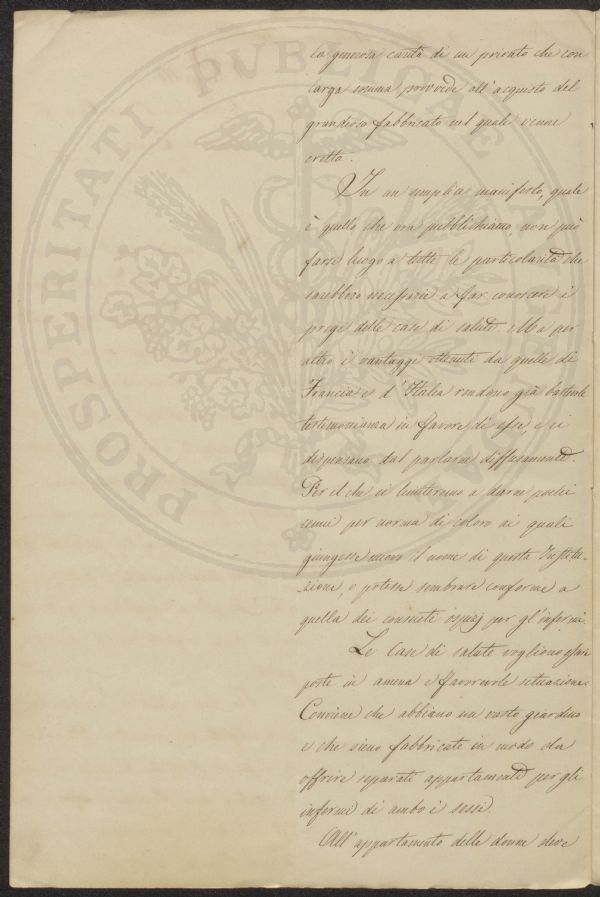 la generosa carità di un privato che con
larga somma provvede all'acquisto del
grandioso fabbricato nel quale venne
eretta.
In un semplice manifesto, quale
è quello che ora pubblichiamo, non può
farsi luogo a tutte le particolarità che
sarebbero necessarie a far conoscere i
pregi delle case di salute. Ma per
altro i vantaggi ottenuti da quelle di
Francia e d'Italia rendono già bastevole
testimonianza in favore di esse, e ci
dispensano dal parlarne diffusamente.
Per il che ci limiteremo a darne pochi
cenni per norma di coloro ai quali
giungesse nuovo il nome di questa Instituzione,
-zione, o potesse sembrare conforme a
quella dei consueti ospizj per gl'infermi.
Le Case di salute vogliono essere
poste in amena e favorevole situazione.
Conviene che abbiano un vasto giardino
e che sieno fabbricate in modo da
offrire separati appartamenti per gli
infermi di ambo i sessi.
All'appartamento delle donne deve
PROSPERITATI PUBLICAE